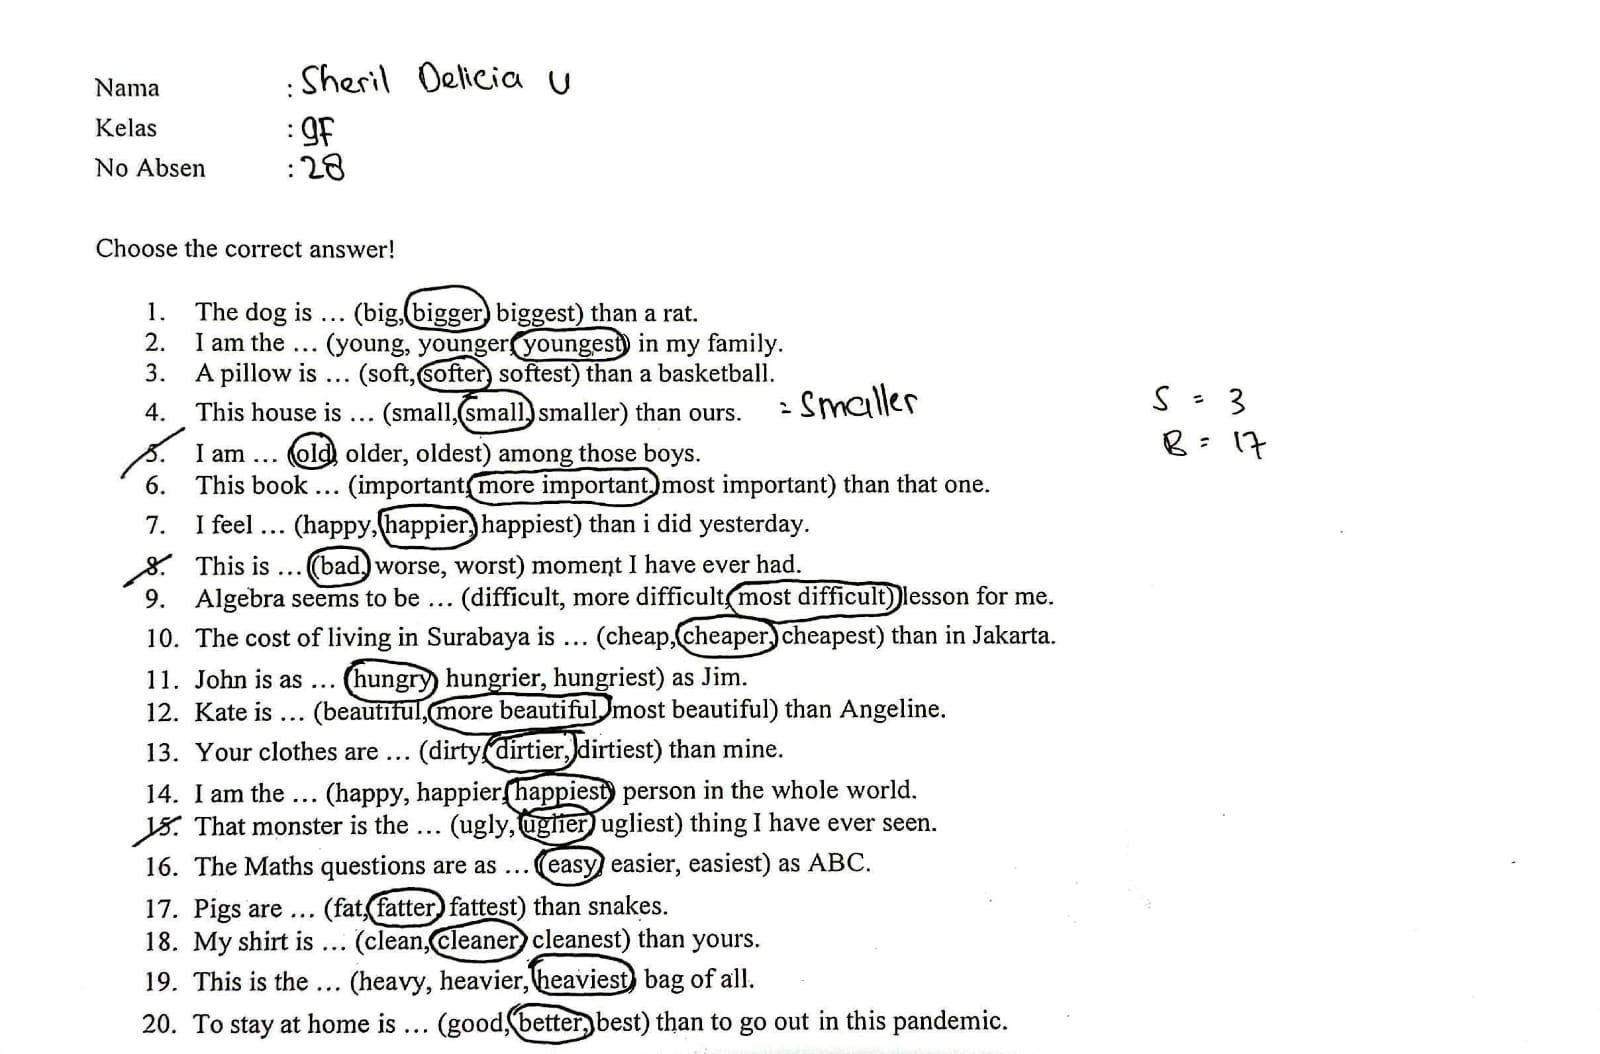 Nama : Sheril Delicia U
Kelas : 9F
No Absen : 28
Choose the correct answer!
1. The dog is ... (big, bigger, biggest) than a rat.
2. I am the ... (young, younger, youngest) in my family.
3. A pillow is ... (soft, softer, softest) than a basketball.
4. This house is ... (small, small, smaller) than ours. = Smaller
S = 3
B = 17
5. I am ... (old, older, oldest) among those boys.
6. This book ... (important, more important, most important) than that one.
7. I feel ... (happy, happier, happiest) than i did yesterday.
8. This is ... (bad, worse, worst) moment I have ever had.
9. Algebra seems to be ... (difficult, more difficult, most difficult) lesson for me.
10. The cost of living in Surabaya is ... (cheap, cheaper, cheapest) than in Jakarta.
11. John is as ... (hungry, hungrier, hungriest) as Jim.
12. Kate is ... (beautiful, more beautiful, most beautiful) than Angeline.
13. Your clothes are ... (dirty, dirtier, dirtiest) than mine.
14. I am the ... (happy, happier, happiest) person in the whole world.
15. That monster is the ... (ugly, uglier, ugliest) thing I have ever seen.
16. The Maths questions are as ... (easy, easier, easiest) as ABC.
17. Pigs are ... (fat, fatter, fattest) than snakes.
18. My shirt is ... (clean, cleaner, cleanest) than yours.
19. This is the ... (heavy, heavier, heaviest) bag of all.
20. To stay at home is ... (good, better, best) than to go out in this pandemic.